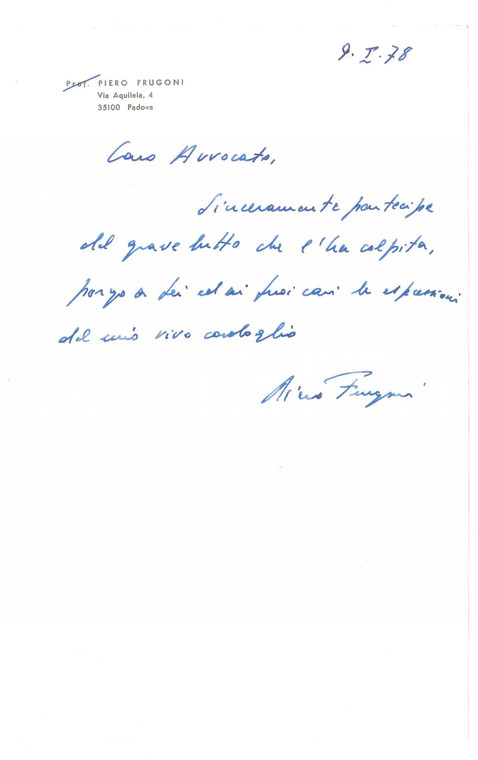 9.I.78
Prof. PIERO FRUGONI
Via Aquileia, 4
35100 Padova
Caro Avvocato,
sinceramente partecipe
del grave lutto che l'ha colpita,
porgo a Lei ed ai Suoi cari le espressioni
del mio vivo cordoglio
Piero Frugoni